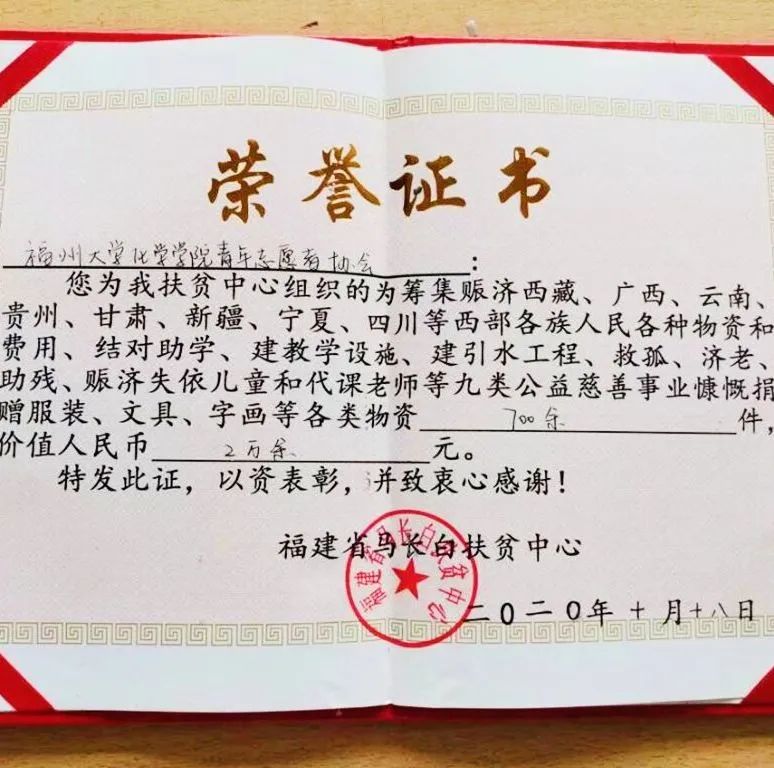 荣誉证书
福州大学化学学院青年志愿者协会：
您为我扶贫中心组织的为筹集赈济西藏、广西、云南、
贵州、甘肃、新疆、宁夏、四川等西部各族人民各种物资和
费用、结对助学、建教学设施、建引水工程、救孤、济老、
助残、赈济失依儿童和代课老师等九类公益慈善事业慷慨捐
赠服装、文具、字画等各类物资700余件，
价值人民币2万余元。
特发此证，以资表彰，并致衷心感谢！
福建省马长白扶贫中心
福建省马长白扶贫中心
二〇二〇年十月十八日